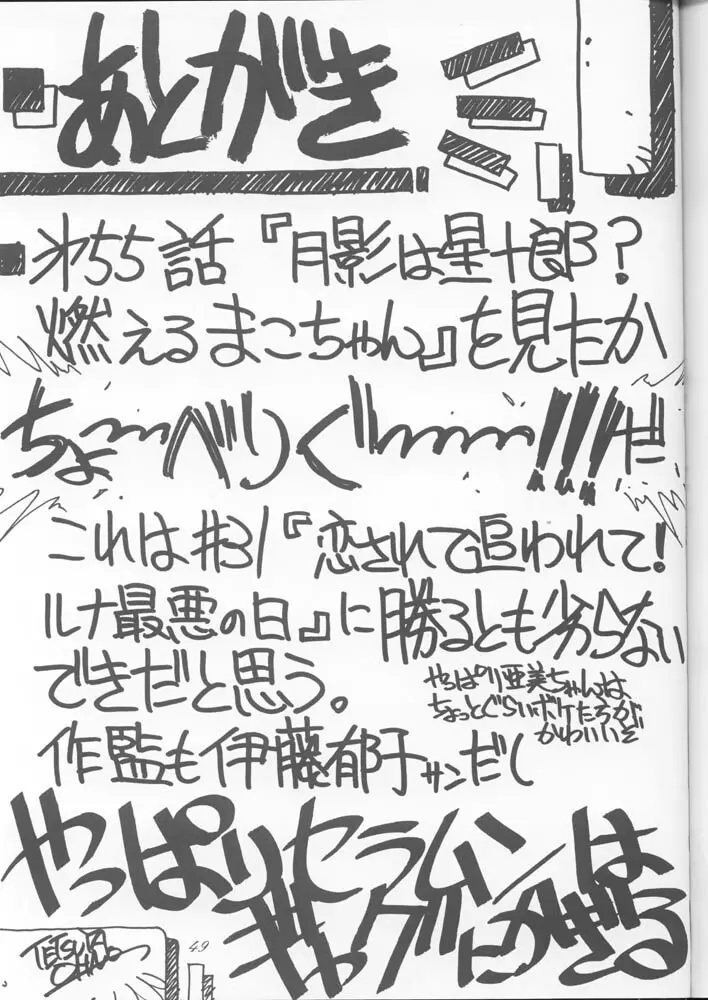 あとがき
オ55話『月影は星十郎?
燃えるまこちゃん』を見たか
ちょ〜〜べりぐ〜〜〜!!!だ
これは#31『恋されて追われて!
ルナ最悪の日』に勝るとも劣らない
できだと思う。
やっぱり亜美ちゃんは
ちょっとぐらいボケたろが
かわいいぞ
作監も伊藤郁子サンだし
やっぱりセラムンは
ギャグにかぎる
TETSUYA
49